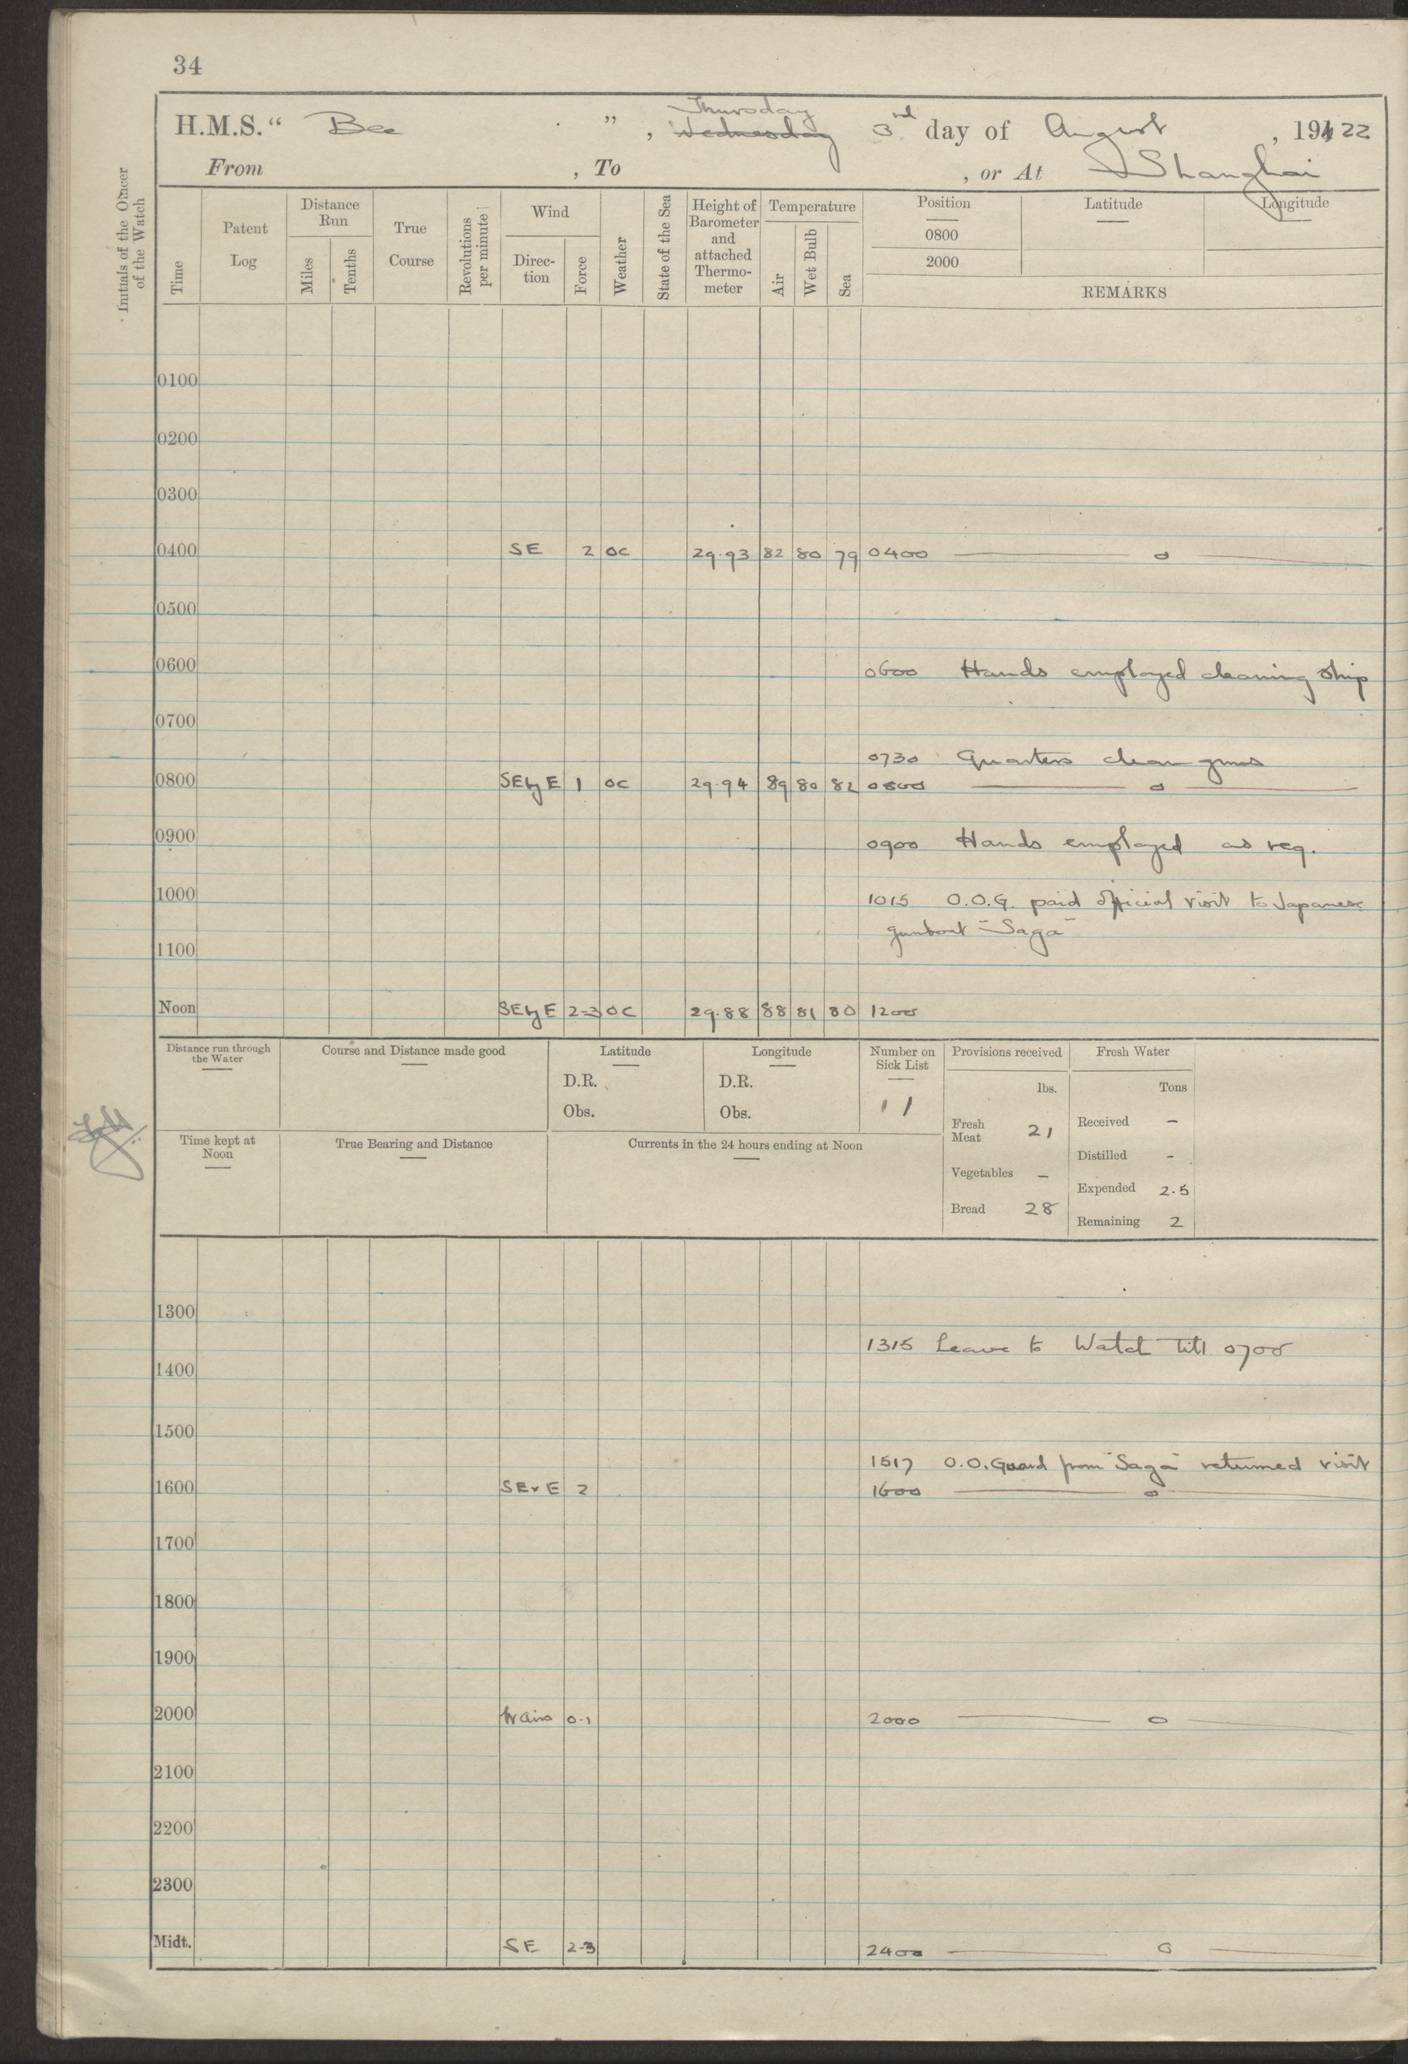 34
H.M.S. " Bee ", Wednesday Thursday 3rd day of August, 19122
From , To , or At Shanghai
Initials of the Officer of the Watch
Time
Patent Log
Distance Run
Miles
Tenths
True Course
Revolutions per minute
Wind
Direction
Force
Weather
State of the Sea
Height of Barometer and attached Thermometer
Temperature
Air
Wet Bulb
Sea
Position
0800
2000
Latitude
Longitude
REMARKS
0100
0200
0300
0400 SE 2 oc 29.93 82 80 79 0400 — o —
0500
0600 0600 Hands employed cleaning ship
0700
0730 Quarters clean guns
0800 SE by E 1 oc 29.94 89 80 82 0800 — o —
0900 0900 Hands employed as req.
1000 1015 O.O.G. paid official visit to Japanese
gunboat "Saga"
1100
Noon SE by E 2-3 oc 29.88 88 81 80 1200
Distance run through the Water
Course and Distance made good
Latitude
D.R.
Obs.
Longitude
D.R.
Obs.
Number on Sick List
11
Provisions received
lbs.
Fresh Meat 21
Vegetables –
Bread 28
Fresh Water
Tons
Received –
Distilled –
Expended 2.5
Remaining 2
Time kept at Noon
True Bearing and Distance
Currents in the 24 hours ending at Noon
1300
1315 Leave to Watch till 0700
1400
1500
1517 O.O.Guard from "Saga" returned visit
1600 SE x E 2 1600 — o —
1700
1800
1900
2000 0-1 2000 — o —
2100
2200
2300
Midt. SE 2-3 2400 — o —